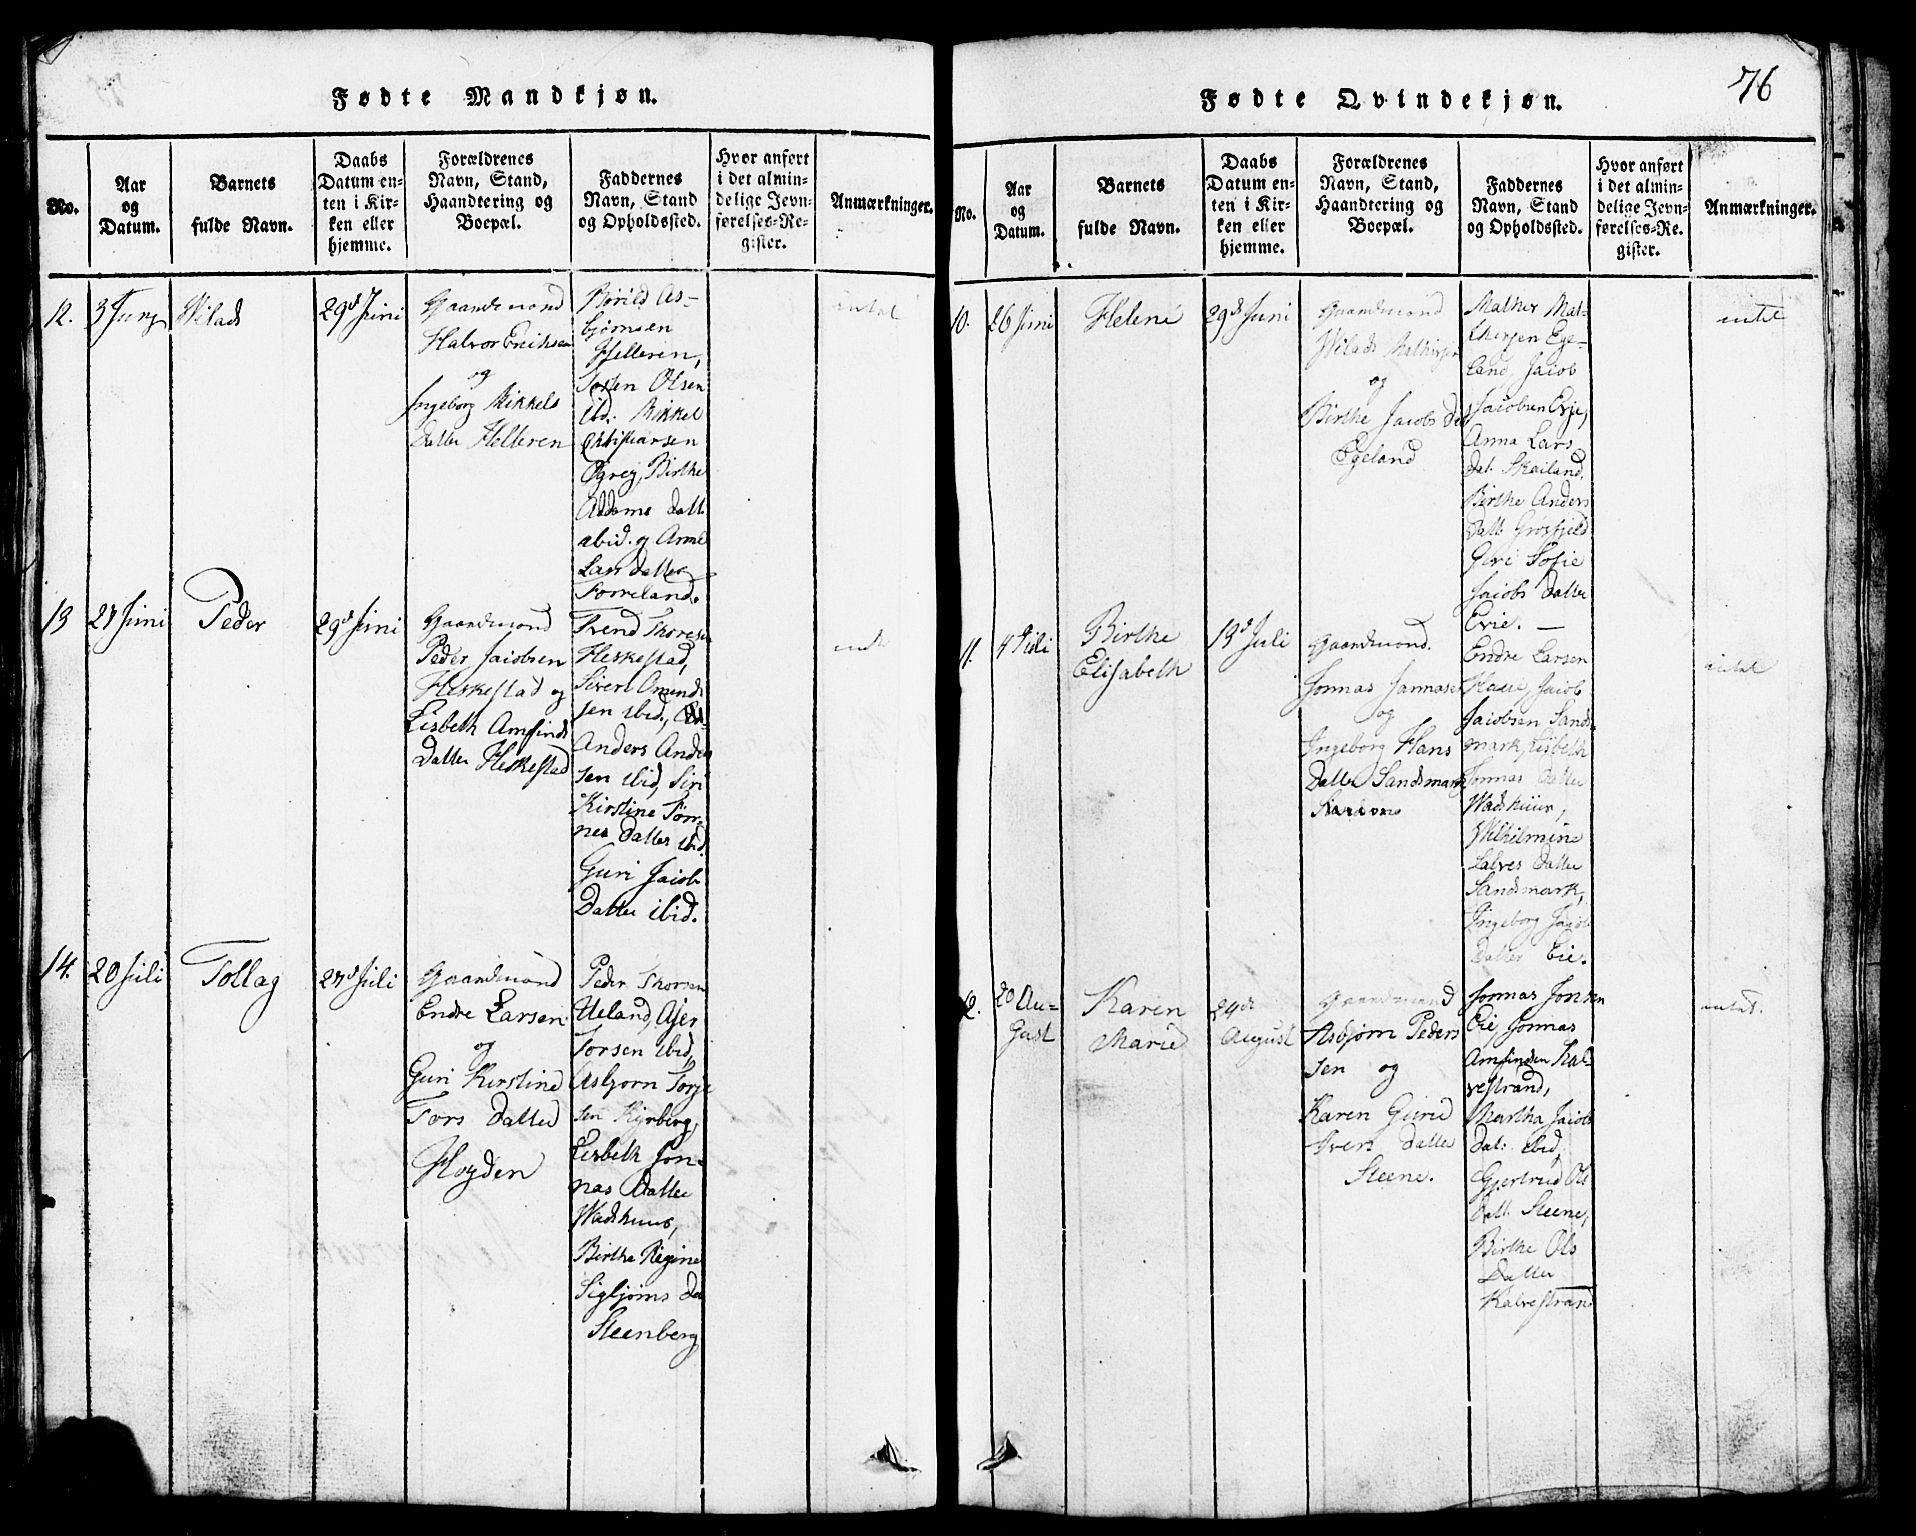 76
Fødte Mandkjøn.
No.
Aar
og
Datum.
Barnets
fulde Navn.
Daabs
Datum en-
ten i Kir-
ken eller
hjemme.
Forældrenes
Navn, Stand,
Haandtering og
Boepæl.
Faddernes
Navn, Stand
og Opholdssted.
Hvor anført
i det almin-
delige Jevn-
førelses-Re-
gister.
Anmærkninger.
12.
3 Juny
Wilads
29d Juni
Gaardmand
Halvor Eriksen
og
Ingeborg Mikkels
Datter Helleren
Børild As-
bjørnsen
Helleren,
Tosten Olsen
ibd. Mikkel
Christiansen
Øgrej, Birthe
Addams Datt.
abid. og Anne
Lars Datter
Torreland.
intet
13
27 Juni
Peder
29d Juni
Gaardmand
Peder Jacobsen
Heskestad og
Lisbeth Amfinds
Datter Heskestad
Trend Thoresen
Heskestad,
Sivert Omends
sen ibid.,
Anders Ander
sen ibid, Siri
Kirstine Tøn-
nes Datter ibid.
Guri Jacob
Datter ibid.
14.
20 Juli
Tollag
27d Juli
Gaardmand
Endre Larsen
og
Guri Kirstine
Tors Datter
Høyden
Peder Thorsen
Ueland, Ajer
Torsen ibid,
Asbjørn Torje
sen Kyrberg,
Lisbeth Jon-
nas Datter
Wadshuus,
Birthe Regine
Sigbjørns Da
Steenberg
Fødte Qvindekjøn.
No.
Aar
og
Datum.
Barnets
fulde Navn.
Daabs
Datum en-
ten i Kir-
ken eller
hjemme.
Forældrenes
Navn, Stand,
Haandtering og
Boepæl.
Faddernes
Navn, Stand
og Opholdssted.
Hvor anført
i det almin-
delige Jevn-
førelses-Re-
gister.
Anmærkninger.
10.
26 Juni
Helene
29d Juni
Gaardmand
Wilads Mathisen
og
Birthe Jacobs Dat
Egeland
Mathes Mat-
thersen Ege-
land, Jacob
Jacobsen Evje,
Anna Lars
Dat. Skailand,
Birthe Anders
Datt. Grosfjeld
Guri Sofie
Jacobs Datter
Evie. —
intet
11.
4 Juli
Birthe
Elisabeth
13d Juli
Gaardmand.
Jonnas Jonnasen
og
Ingeborg Hans
Datter Sandsmark
Endre Larsen
Jacob
Jacobsen Sands
mark, Lisbeth
Jonnas Datter
Wadshuus,
Wilhelmine
Salves Datter
Sandsmark,
Ingeborg Jacob
Datter Eie.
intet
12.
20 Au-
gust
Karen
Marie
24de
August
Gaardmand
Asbjørn Peders
sen og
Karen Gurie
Ivers Datter
Steene.
Jonnas Jonsen
Eie, Jonnas
Amfinden Kal-
vestrand,
Martha Jacobs
Dat. ibid,
Gjertrud Ols
Datt. Steene,
Birthe Ols
Datter
Kalvestrand
intet.